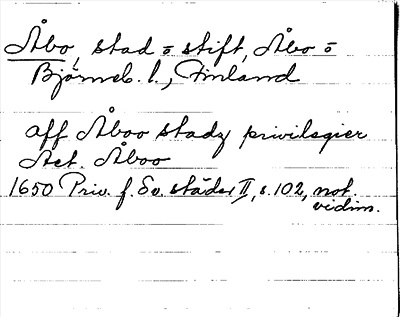 Åbo, stad o stift, Åbo o
Björneb. l., Finland
aff Åboo stadz privilegier
Act. Åboo
1650 Priv. f. Sv. städer II, s. 102, not.
vidim.